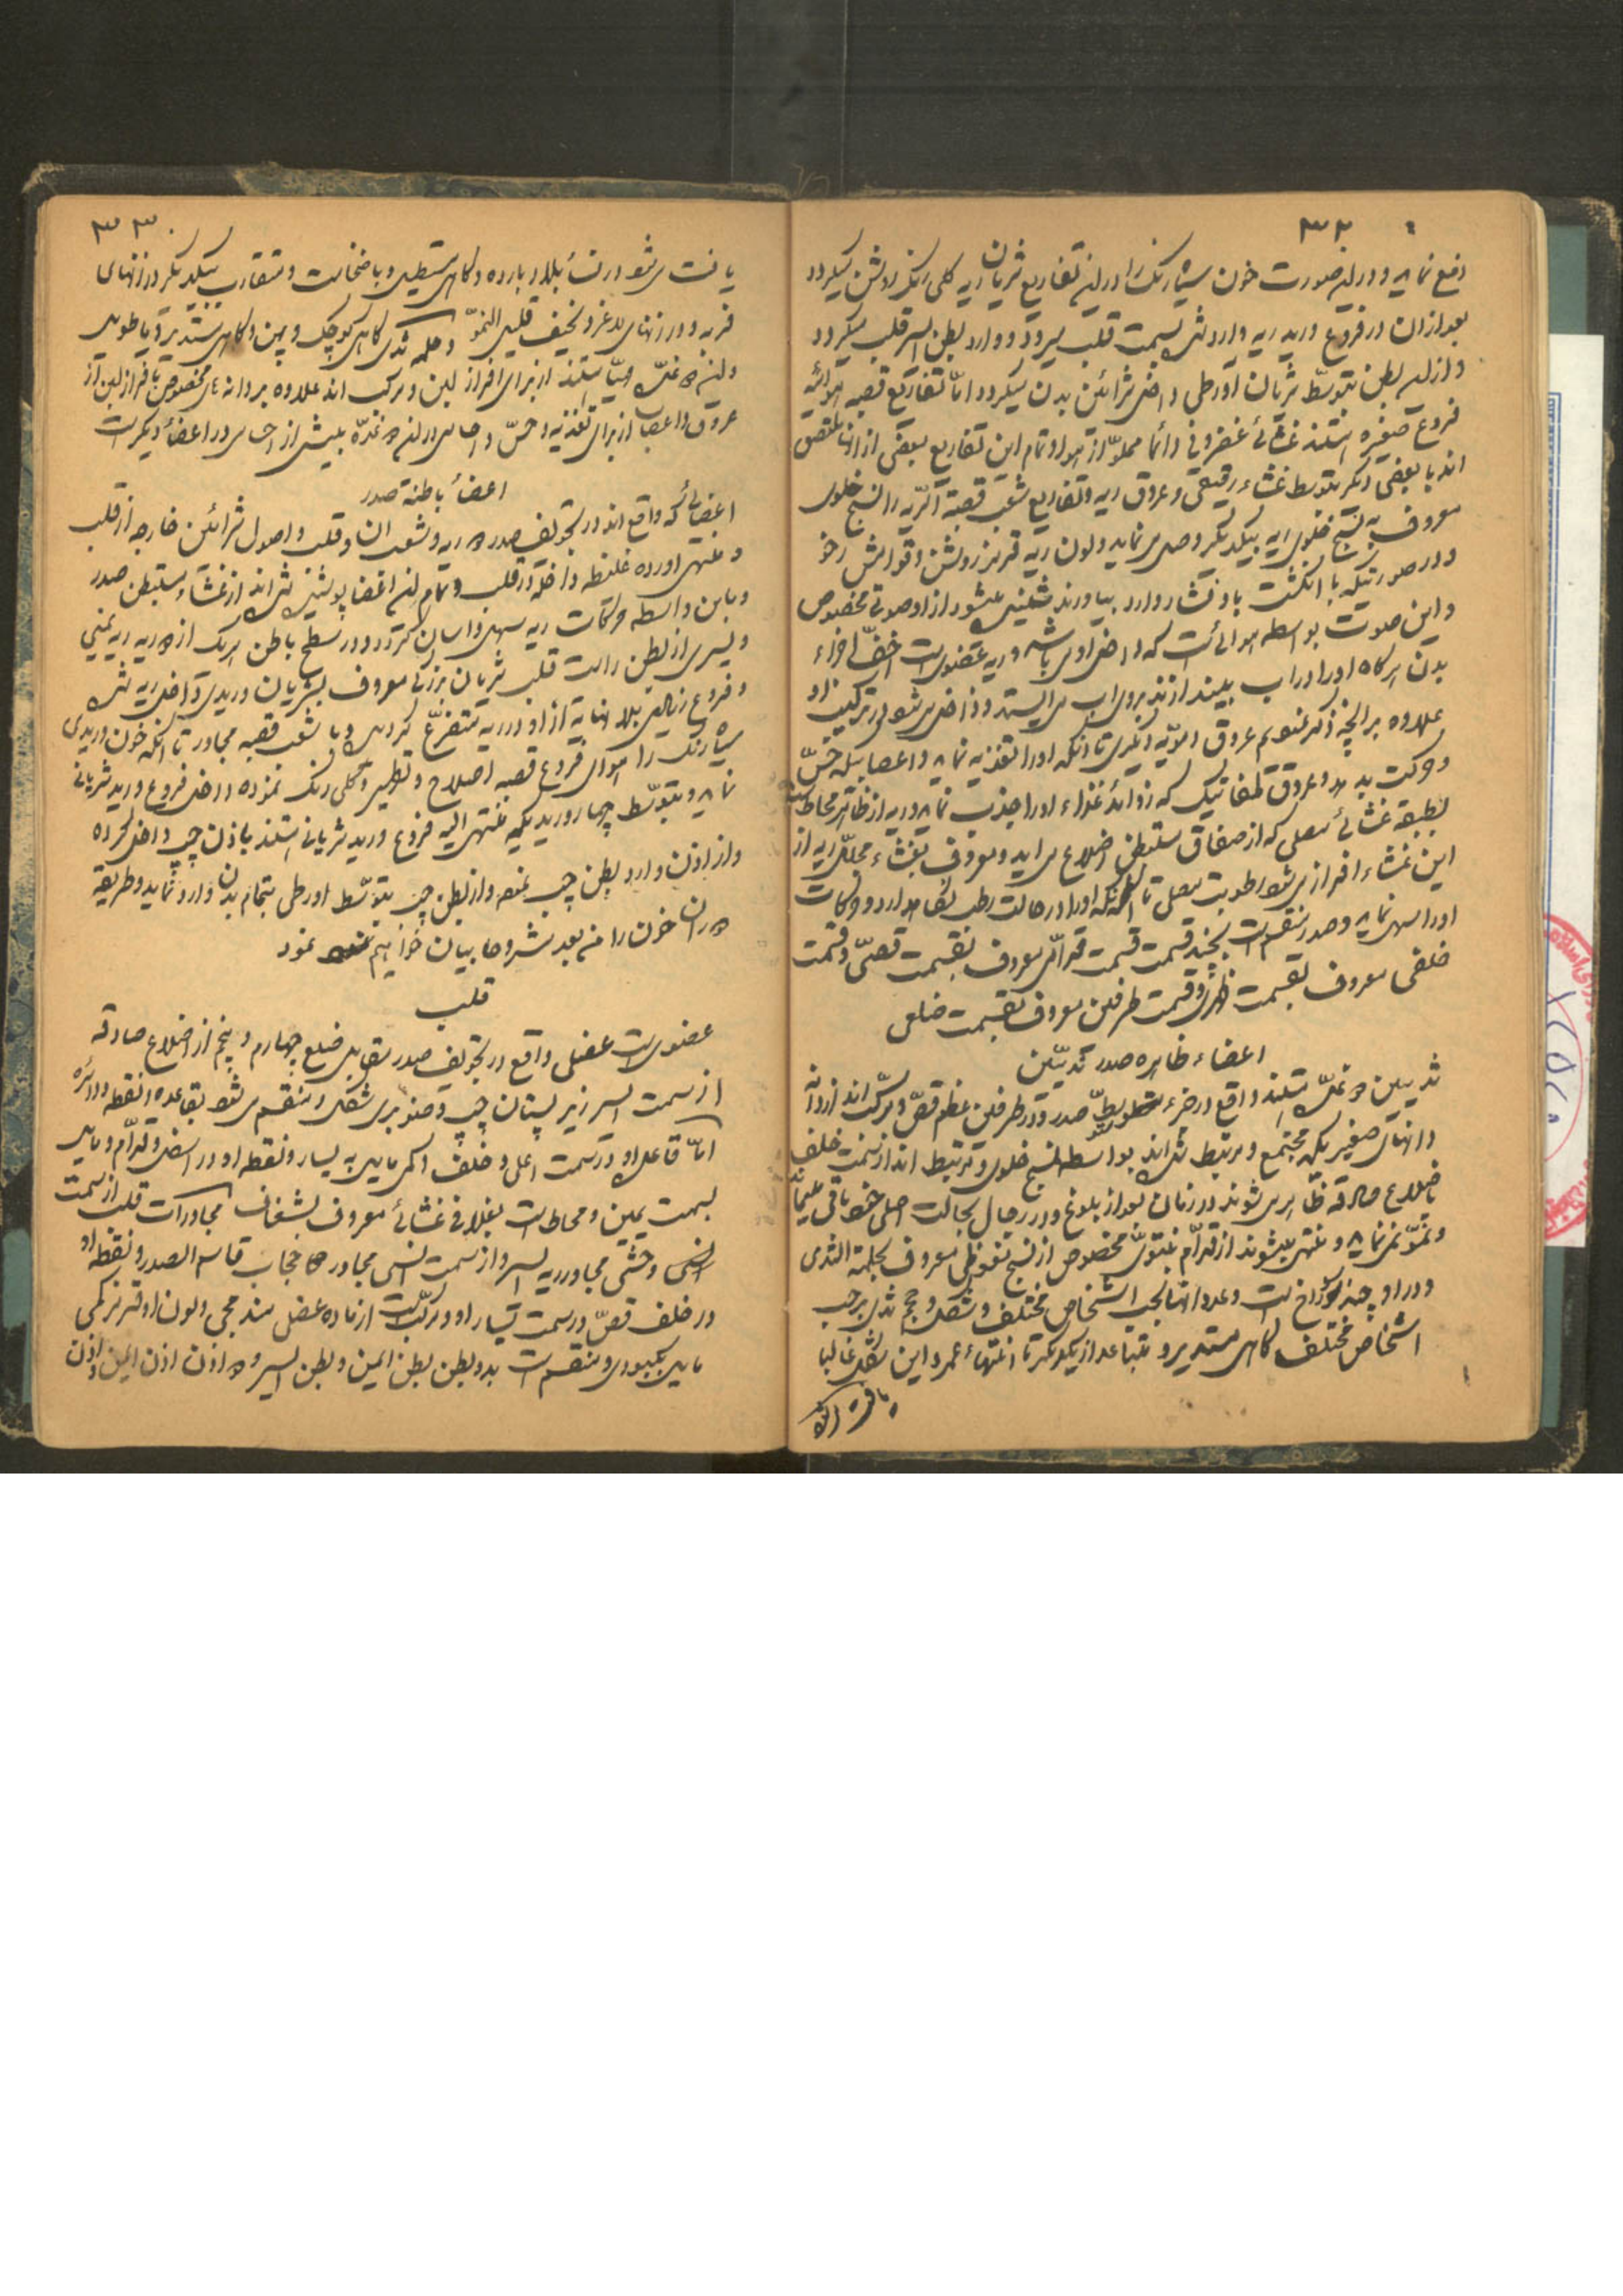 ۳۲
دفع نماید و در این صورت خون سیاه رنگ را در این تفاریع شریان ریه کلی رنگ روشن میگردد
بعد از ان در فروع ورید ریه وارد شده بسمت قلب میرود و وارد بطن ایسر قلب میگردد
و از این بطن بتوسّط شریان آورطی داخل شرائین بدن میگردد امّا تفاریع قصبه هوائیّه
فروع صغیره هستند غشائی غضروفی دائما مملوّ از هوا و تمام این تفاریع بعضی از انها ملتصق
اند با بعضی دیگر بتوسط غشاء رقیقی و عروق ریه و تفاریع شعب قصبة الرّیه را نسج خلوی
معروف به نسج خلوی ریه بیکدیگر وصل می نماید و لون ریه قرمز روشن و قوامش رخو
و در صورتیکه با انگشت باو فشار وارد بیاورند شنیده میشود از او صوتی مخصوص
و این صوت بواسطه هوائی است که داخل اوی باشد و ریه عضوی است اخفّ اجزاء
بدن هرگاه او را در اب بیندازند بروی اب می ایستد و داخل می شود در ترکیب او
علاوه بر انچه ذکر نمودیم عروق دمویّه دیگری تا انکه او را تغذیه نماید و اعصابیکه حسّ
و حرکت بدهد و عروق لمفاتیک که زوائد غذاء او را جذب نماید و ریه از ظاهر محاط است
بطبقه غشائی مصلی که از صفاق مستبطن اضلاع می اید و معروف بغشاء مجلّل ریه از
این غشاء افراز می شود رطوبت مصلی تا انکه او را در حالت رطب نگاه دارد و حرکات
او را سهل نماید و صدر منقسم است بچند قسمت قسمت قدّامی معروف بقسمت قصّی و قسمت
خلفی معروف بقسمت ظهری و قسمت طرفین معروف بقسمت ضلعی
اعضاء ظاهره صدر ثدیّین
ثدیین دو غدّه هستند واقع در جزء متوسّط صدر و در طرفین عظم قصّ و مرکّب اند از دانه
دانهای صغیر که مجتمع و مرتبط شده اند بواسطه نسج خلوی و مرتبط اند از سمت خلف
باضلاع صادقه ظاهر می شوند در زنان بعد از بلوغ و در رجال بحالت اصلی خود باقی میماند
و نموّ نمی نماید و منتهی میشوند از قدّام بنتوئی مخصوص از نسج نعوظی معروف بحلمة الثدی
و در او چند سوراخ است و عدد انها بحسب اشخاص مختلف و شکل و حجم ثدی برحسب
اشخاص مختلف گاهی مستدیر و متباعد از یکدیگر تا انتهاء عمر و این شکل غالبا
یافت
۳۳
یافت می شود در نساء بلاد بارده و گاهی مستطیل و با ضخامت و متقارب بیکدیگر در زنهای
فربه و در زنهای لاغر و نحیف قلیل النموّ و حلمه ثدی گاهی کوچک و پهن و گاهی مستدیر و یا طویل
و این دو غدّه مهیّا هستند از برای افراز لبن و مرکب اند علاوه بر دانه های مخصوص بافراز لبن از
عروق و اعصاب از برای تغذیه و حسّ و احساس در این دو غدّه بیش از احساس در اعضاء دیگر است
اعضاء باطنه صدر
اعضائی که واقع اند در تجویف صدر دو ریه و شعب ان و قلب و اصول شرائین خارجه از قلب
و منتهی اورده غلیظه داخله در قلب و تمام این اعضا پوشیده شده اند از غشاء مستبطن صدر
و باین واسطه حرکات ریه سهل و اسان گردد و در سطح باطن هر یک از دو ریه ریه یمنی
و یسری از بطن راست قلب شریان بزرگی معروف بشریان وریدی داخل ریه شده
و فروع زیادی بلا نهایه از او در ریه متفرّع گردیده و با شعب قصبه مجاور تا انکه خون وریدی
سیاه رنگ را هوای فروع قصبه اصلاح و تطهیر و گلی رنگ نموده داخل فروع ورید شریانی
نماید و بتوسّط چهار ورید که منتهی الیه فروع ورید شریانی هستند باذن چپ داخل گردیده
و از اذن وارد بطن چپ نموده و از بطن چپ بتوسّط اورطی بتمام بدن وارد نماید و طریقه
دوران خون را من بعد مشروحا بیان خواهیم نمود
قلب
عضوی است عضلی واقع در تجویف صدر مقابل ضلع چهارم و پنجم از اضلاع صادقه
از سمت ایسر زیر پستان چپ و صنوبری شکل و منقسم می شود بقاعده و نقطه و دائره
امّا قاعده او در سمت اعلی و خلف و کمی مایل به یسار و نقطه او در اسفل و قدّام و مایل
بسمت یمین و محاط است بغلافی غشائی معروف بشغاف مجاورات قلب از سمت
وحشی مجاور ریه ایسر و از سمت انسی مجاور حجاب قاسم الصدر و نقطه او
در خلف قصّ در سمت یسار او و مرکّب است از ماده عضلی مندمجی و لون او قرمز کمی
مایل بکبودی و منقسم است بدو بطن بطن ایمن و بطن ایسر و دو اذن اذن ایمن و اذن